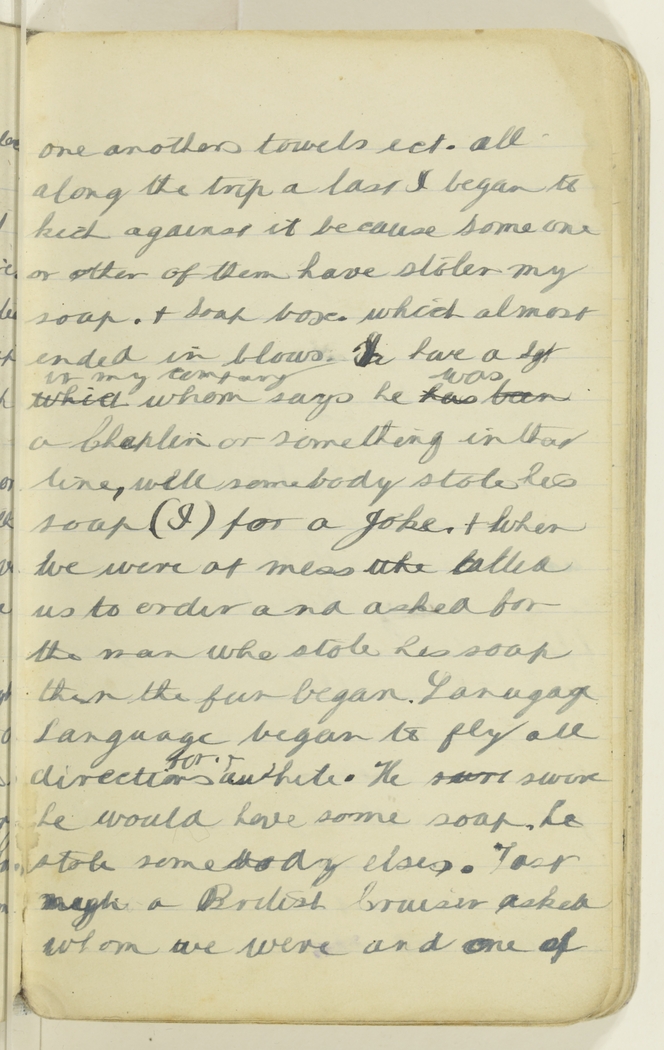 one anothers towels ect. all
along the trip a last I began to
kick against it because some one
or other of them have stolen my
soap. + soap box. which almost
ended in blows. I have a Sgt
in my company was
which whom says he has been
a Chaplin or something in that
line, well somebody stole his
soap (I) for a Joke. + when
we were at mess he called
us to order and asked for
the man who stole his soap
then the fun began. Lanugage
Language began to fly all
for
directions awhile. He swore
he would have some soap. he
stole somebody elses. Last
night a British Cruiser asked
whom we were and one of